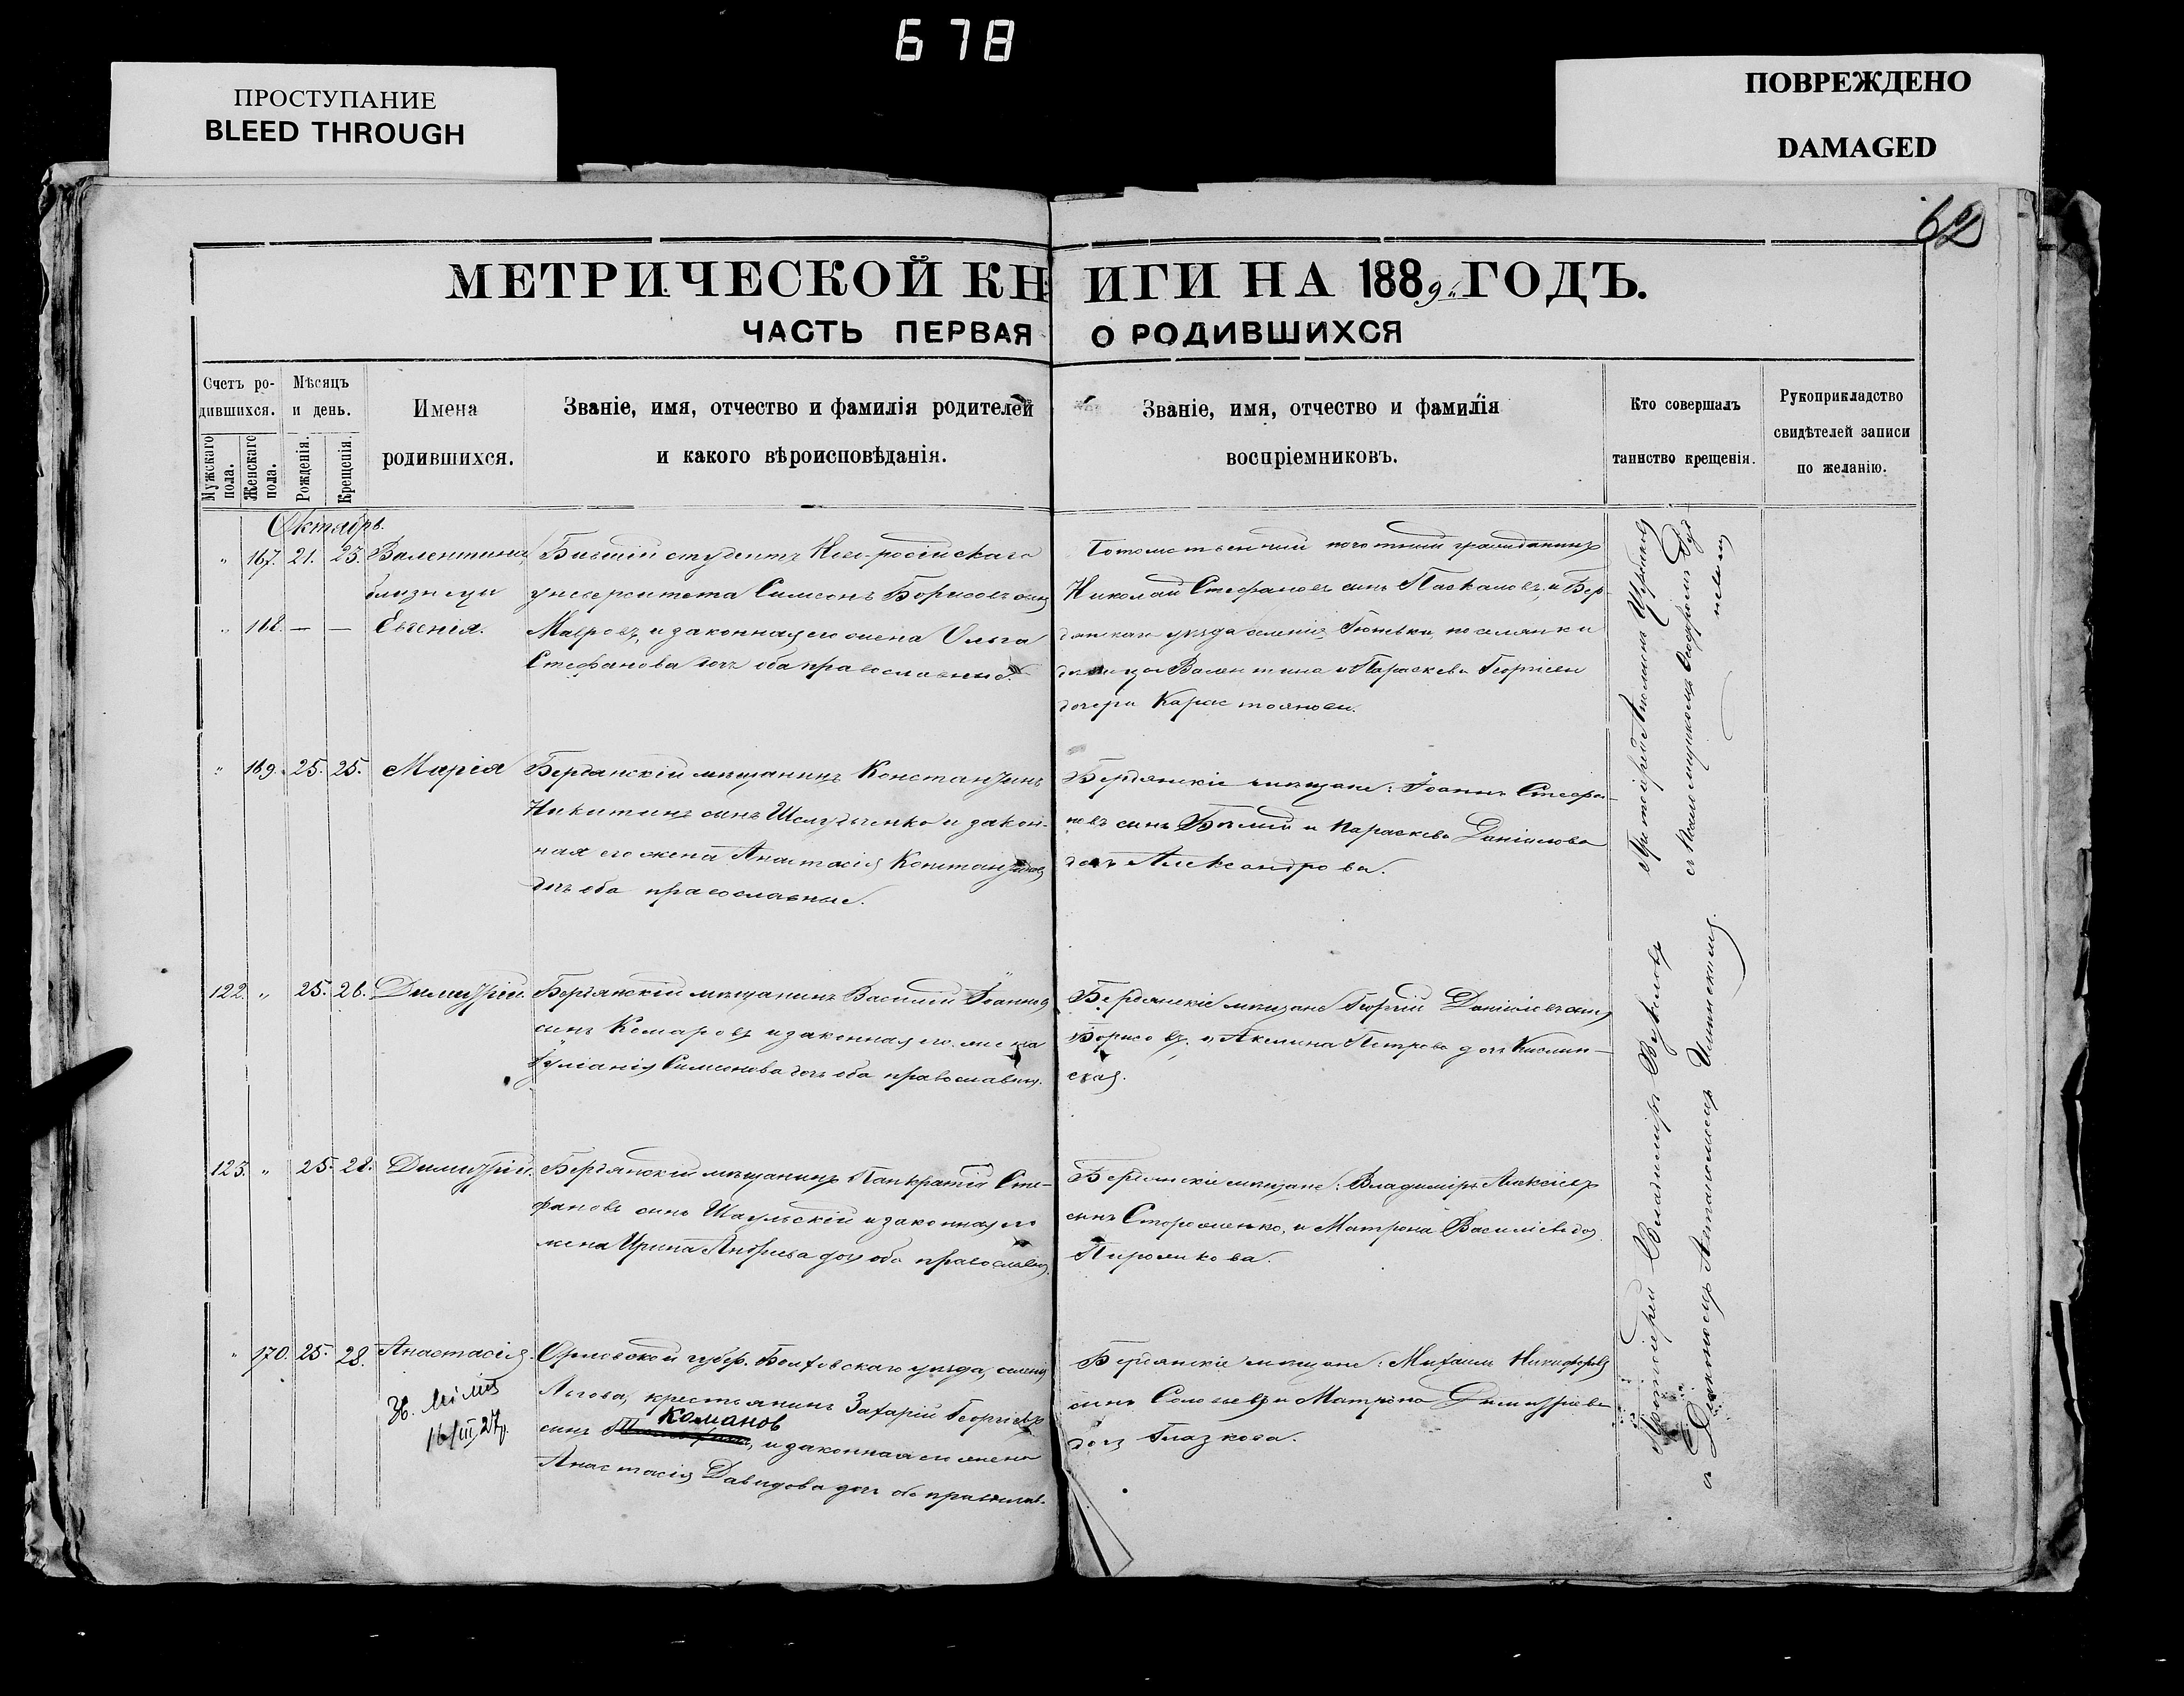 678
ПРОСТУПАНИЕ
BLEED THROUGH
ПОВРЕЖДЕНО
DAMAGED
62
МЕТРИЧЕСКОЙ КНИГИ НА 1889 ГОДЪ.
ЧАСТЬ ПЕРВАЯ О РОДИВШИХСЯ
Счетъ ро-
дившихся.
Мужскаго пола.
Женскаго пола.
Мѣсяцъ
и день.
Рожденія.
Крещенія.
Имена
родившихся.
Званіе, имя, отчество и фамилія родителей
и какого вѣроисповѣданія.
Званіе, имя, отчество и фамилія
воспріемниковъ.
Кто совершалъ
таинство крещенія.
Рукоприкладство
свидѣтелей записи
по желанію.
Октябрь.
" 167. 21. 23. Валентина,
близнецы
" 168. — — Евгенія.
Бывшій студентъ Новоросійскаго
университета Симеонъ Борисовъ сынъ
Мавровъ, и законная его жена Ольга
Стефанова дочь оба православные.
Потомственный почотный гражданинъ
Николай Стефановъ сынъ Паскаловъ, и Бер-
дянскаго уѣзда поселянки
дѣвицы Валентина и Параскева Георгіевы
дочери Карастояновы.
" 169. 25. 25. Марія
Бердянскій мѣщанинъ Константинъ
Никитинъ сынъ Шелудченко и закон-
ная его жена Анастасія Константинова
дочь оба православные.
Бердянскіе мѣщане: Іоаннъ Стефа-
новъ сынъ Бѣлый и Параскева Даніилова
дочь Александрова.
122. " 25. 26. Димитрій.
Бердянскій мѣщанинъ Василій Іоанновъ
сынъ Комаровъ и законная его жена
Іуліанія Симеонова дочь оба православные.
Бердянскіе мѣщане Георгій Даніиловъ сынъ
Борисовъ, и Акилина Петрова дочь Кислин-
ская.
123. " 25. 28. Димитрій.
Бердянскій мѣщанинъ Панкратій Сте-
фановъ сынъ Шаульскій и законная его
жена Ирина Андреева дочь оба православн.
Бердянскіе мѣщане: Владиміръ Алексіевъ
сынъ Стороженко, и Матрона Василіева доч.
Пирожкова.
" 170. 25. 28. Анастасія.
16/III 27 р.
Орловской губер. Болховскаго уѣзда, селенія
Льгова, крестьянинъ Захарій Георгіевъ
Команов
сынъ , и законная его жена
Анастасія Давидова дочь оба православ.
Бердянскіе мѣщане: Михаилъ Никифоровъ
сынъ Соловьевъ и Матрона Димитріева
дочь Глазкова.
Протоіерей
съ Псаломщикомъ Ѳеодоромъ
Протоіерей Владиміръ
съ Діакономъ